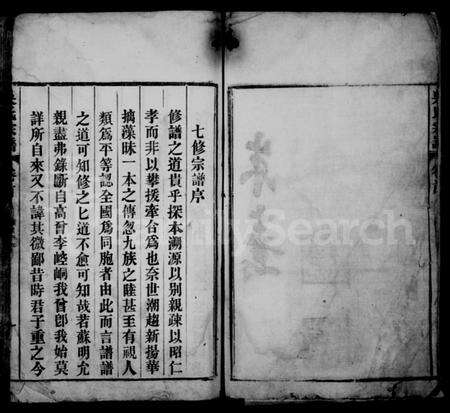 七修宗譜序
修譜之道貴乎探本溯源以別親疎以昭仁
孝而非以攀援牽合為也奈世潮趨新揚華
摘藻昧一本之傳忽九族之睦甚至有視人
類爲平等認全國爲同胞者由此而言譜譜
之道可知修之之道不愈可知哉若蘇明允
親盡弗錄斷自高曾李崆峒我曾卽我始莫
詳所自來又不諱其微鄙昔時君子重之今
FamilySearch